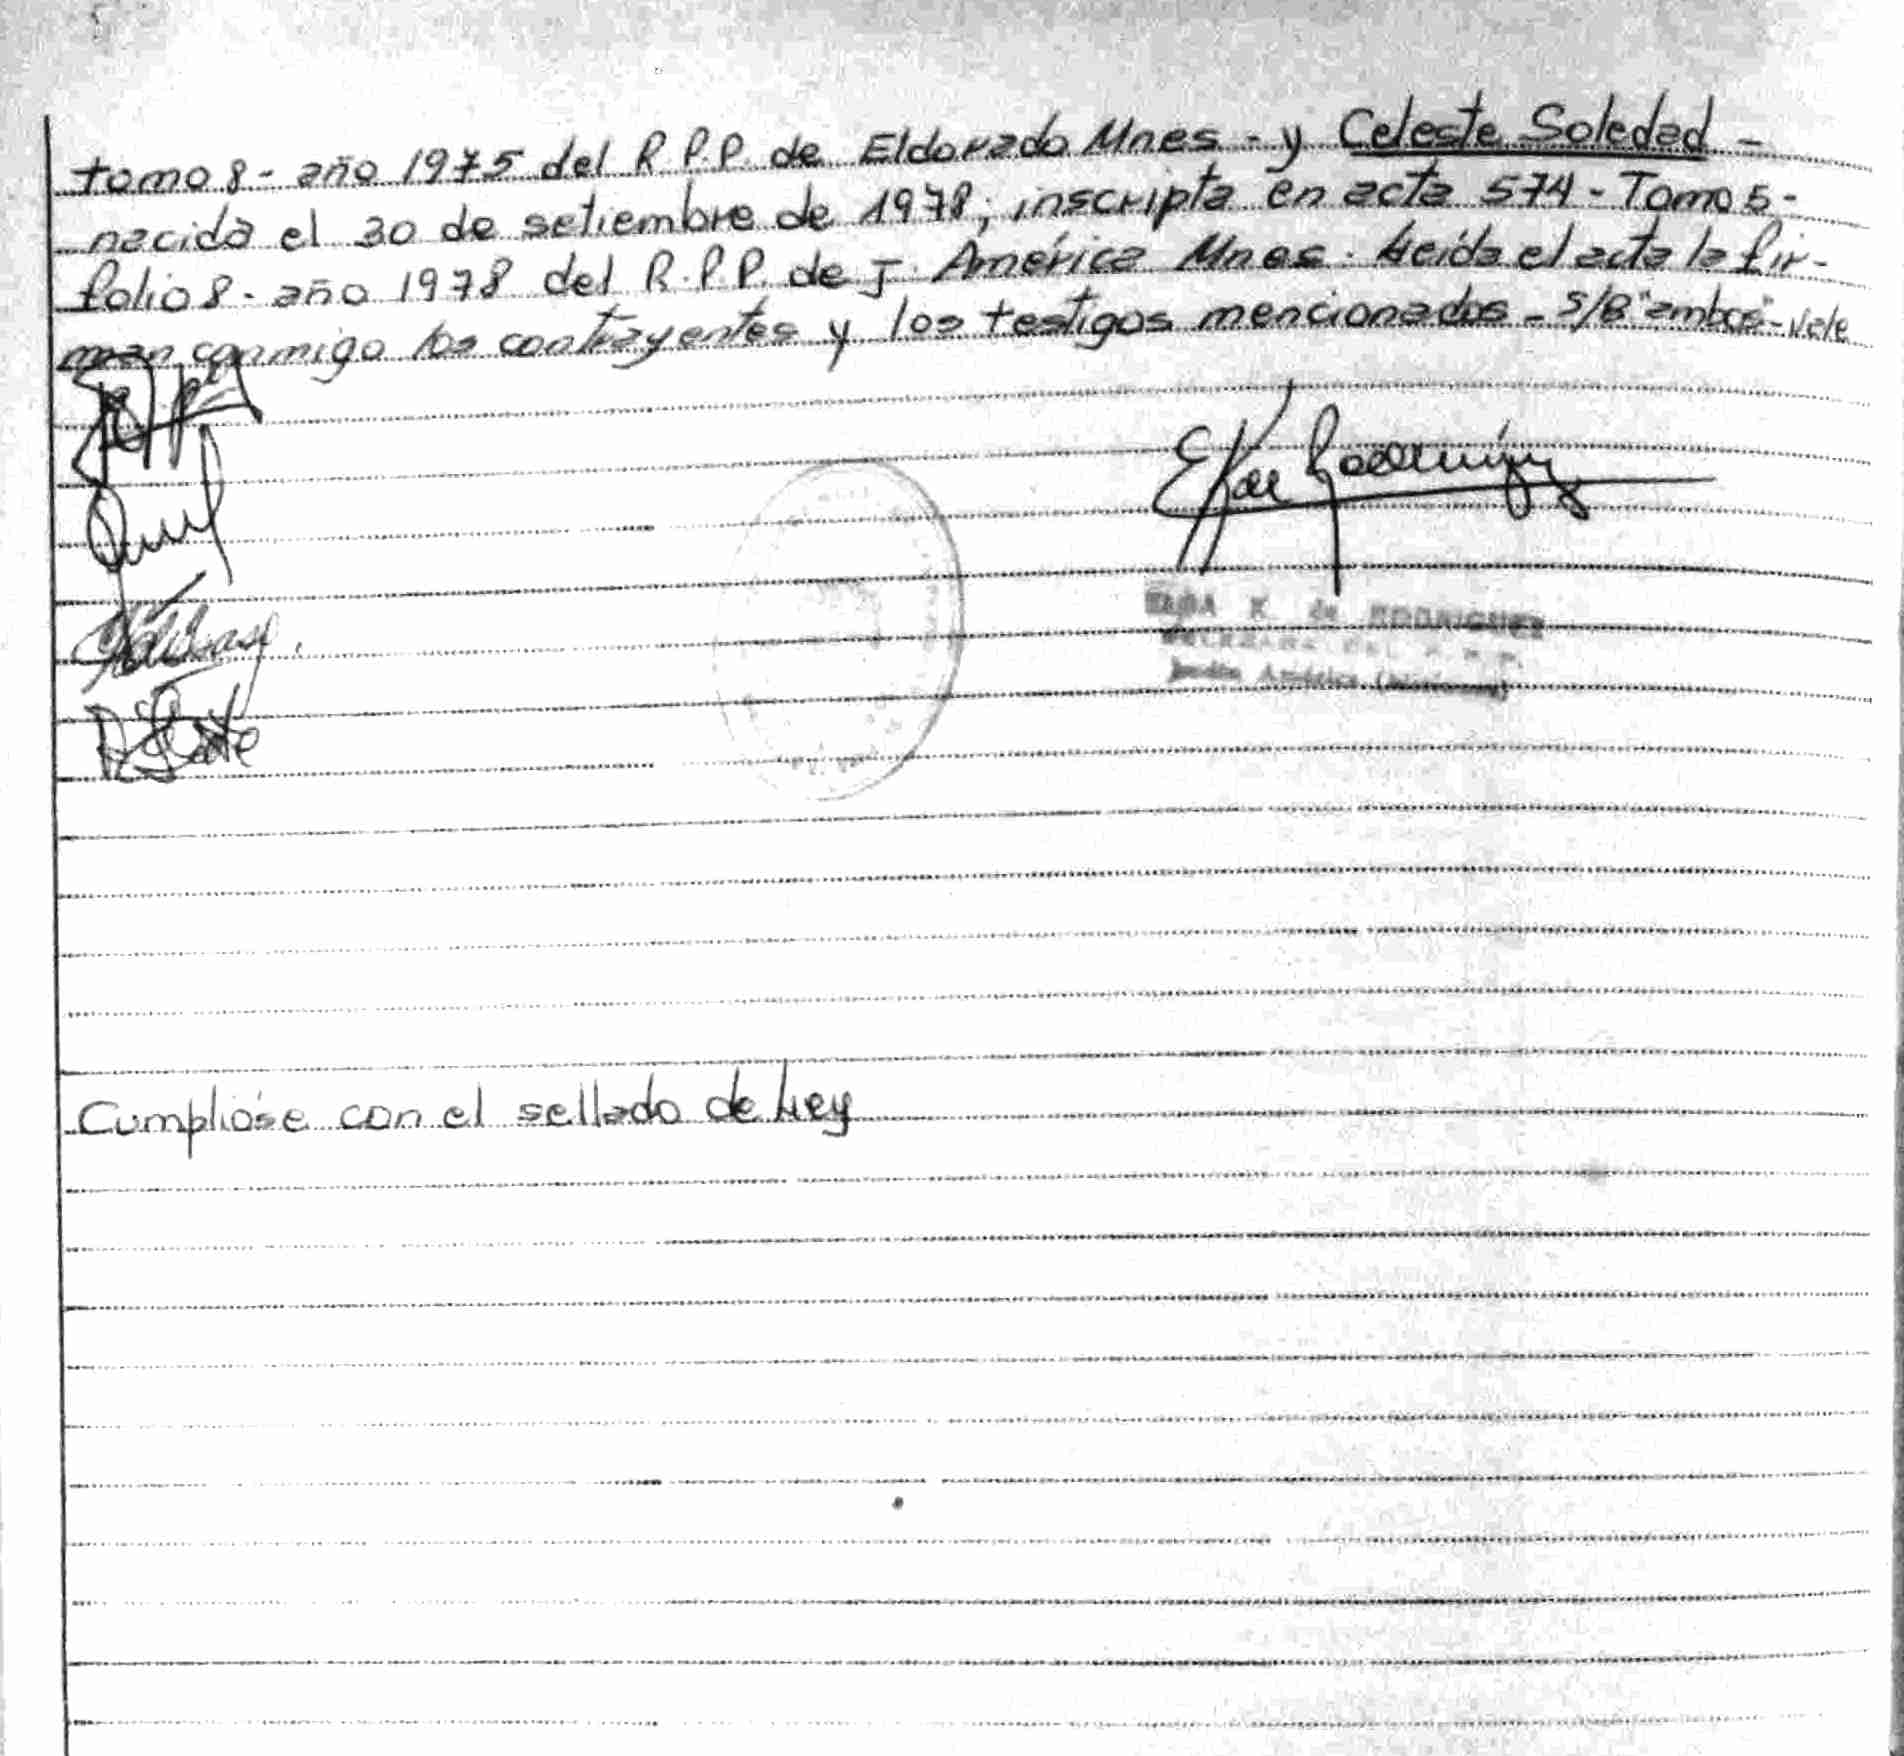 tomo 8 - año 1975 del R P.P. de Eldorado Mnes - y Celeste Soledad -
nacida el 30 de setiembre de 1978; inscripta en acta 574 - Tomo 5 -
folio 8 - año 1978 del R.P.P. de J. América Mnes. Leída el acta la fir-
man conmigo los contrayentes y los testigos mencionados - S/B "ambos" - Vale
de RODRIGUEZ
Jardín América (Misiones)
Cumplióse con el sellado de Ley